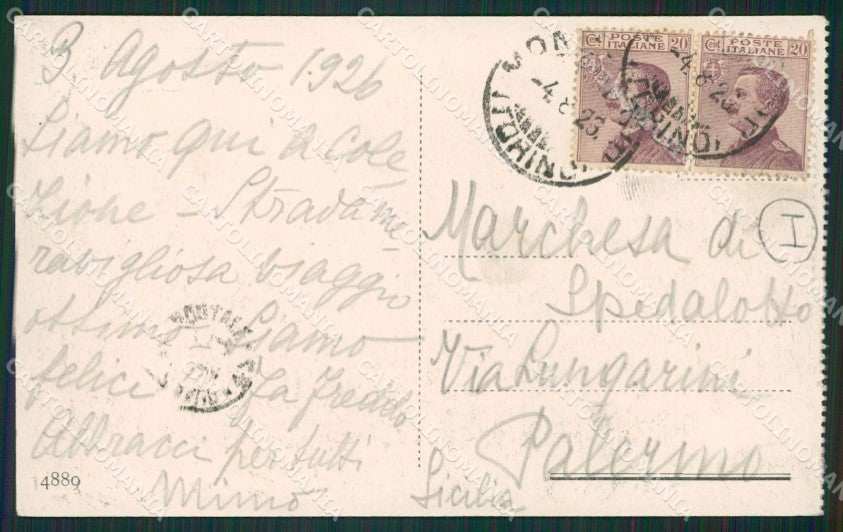 3. Agosto 1926
Siamo qui a Cole
zione - Strada me
ravigliosa viaggio
ottimo - Siamo
felici - Fa freddo
Abbracci per tutti
Mimò
4889
POSTE
ITALIANE
Cent. 20
POSTE
ITALIANE
Cent. 20
4.8.26
I
Marchesa di
Spedalotto
Via Lungarini
Palermo
Sicilia
CARTOLINOMANIA